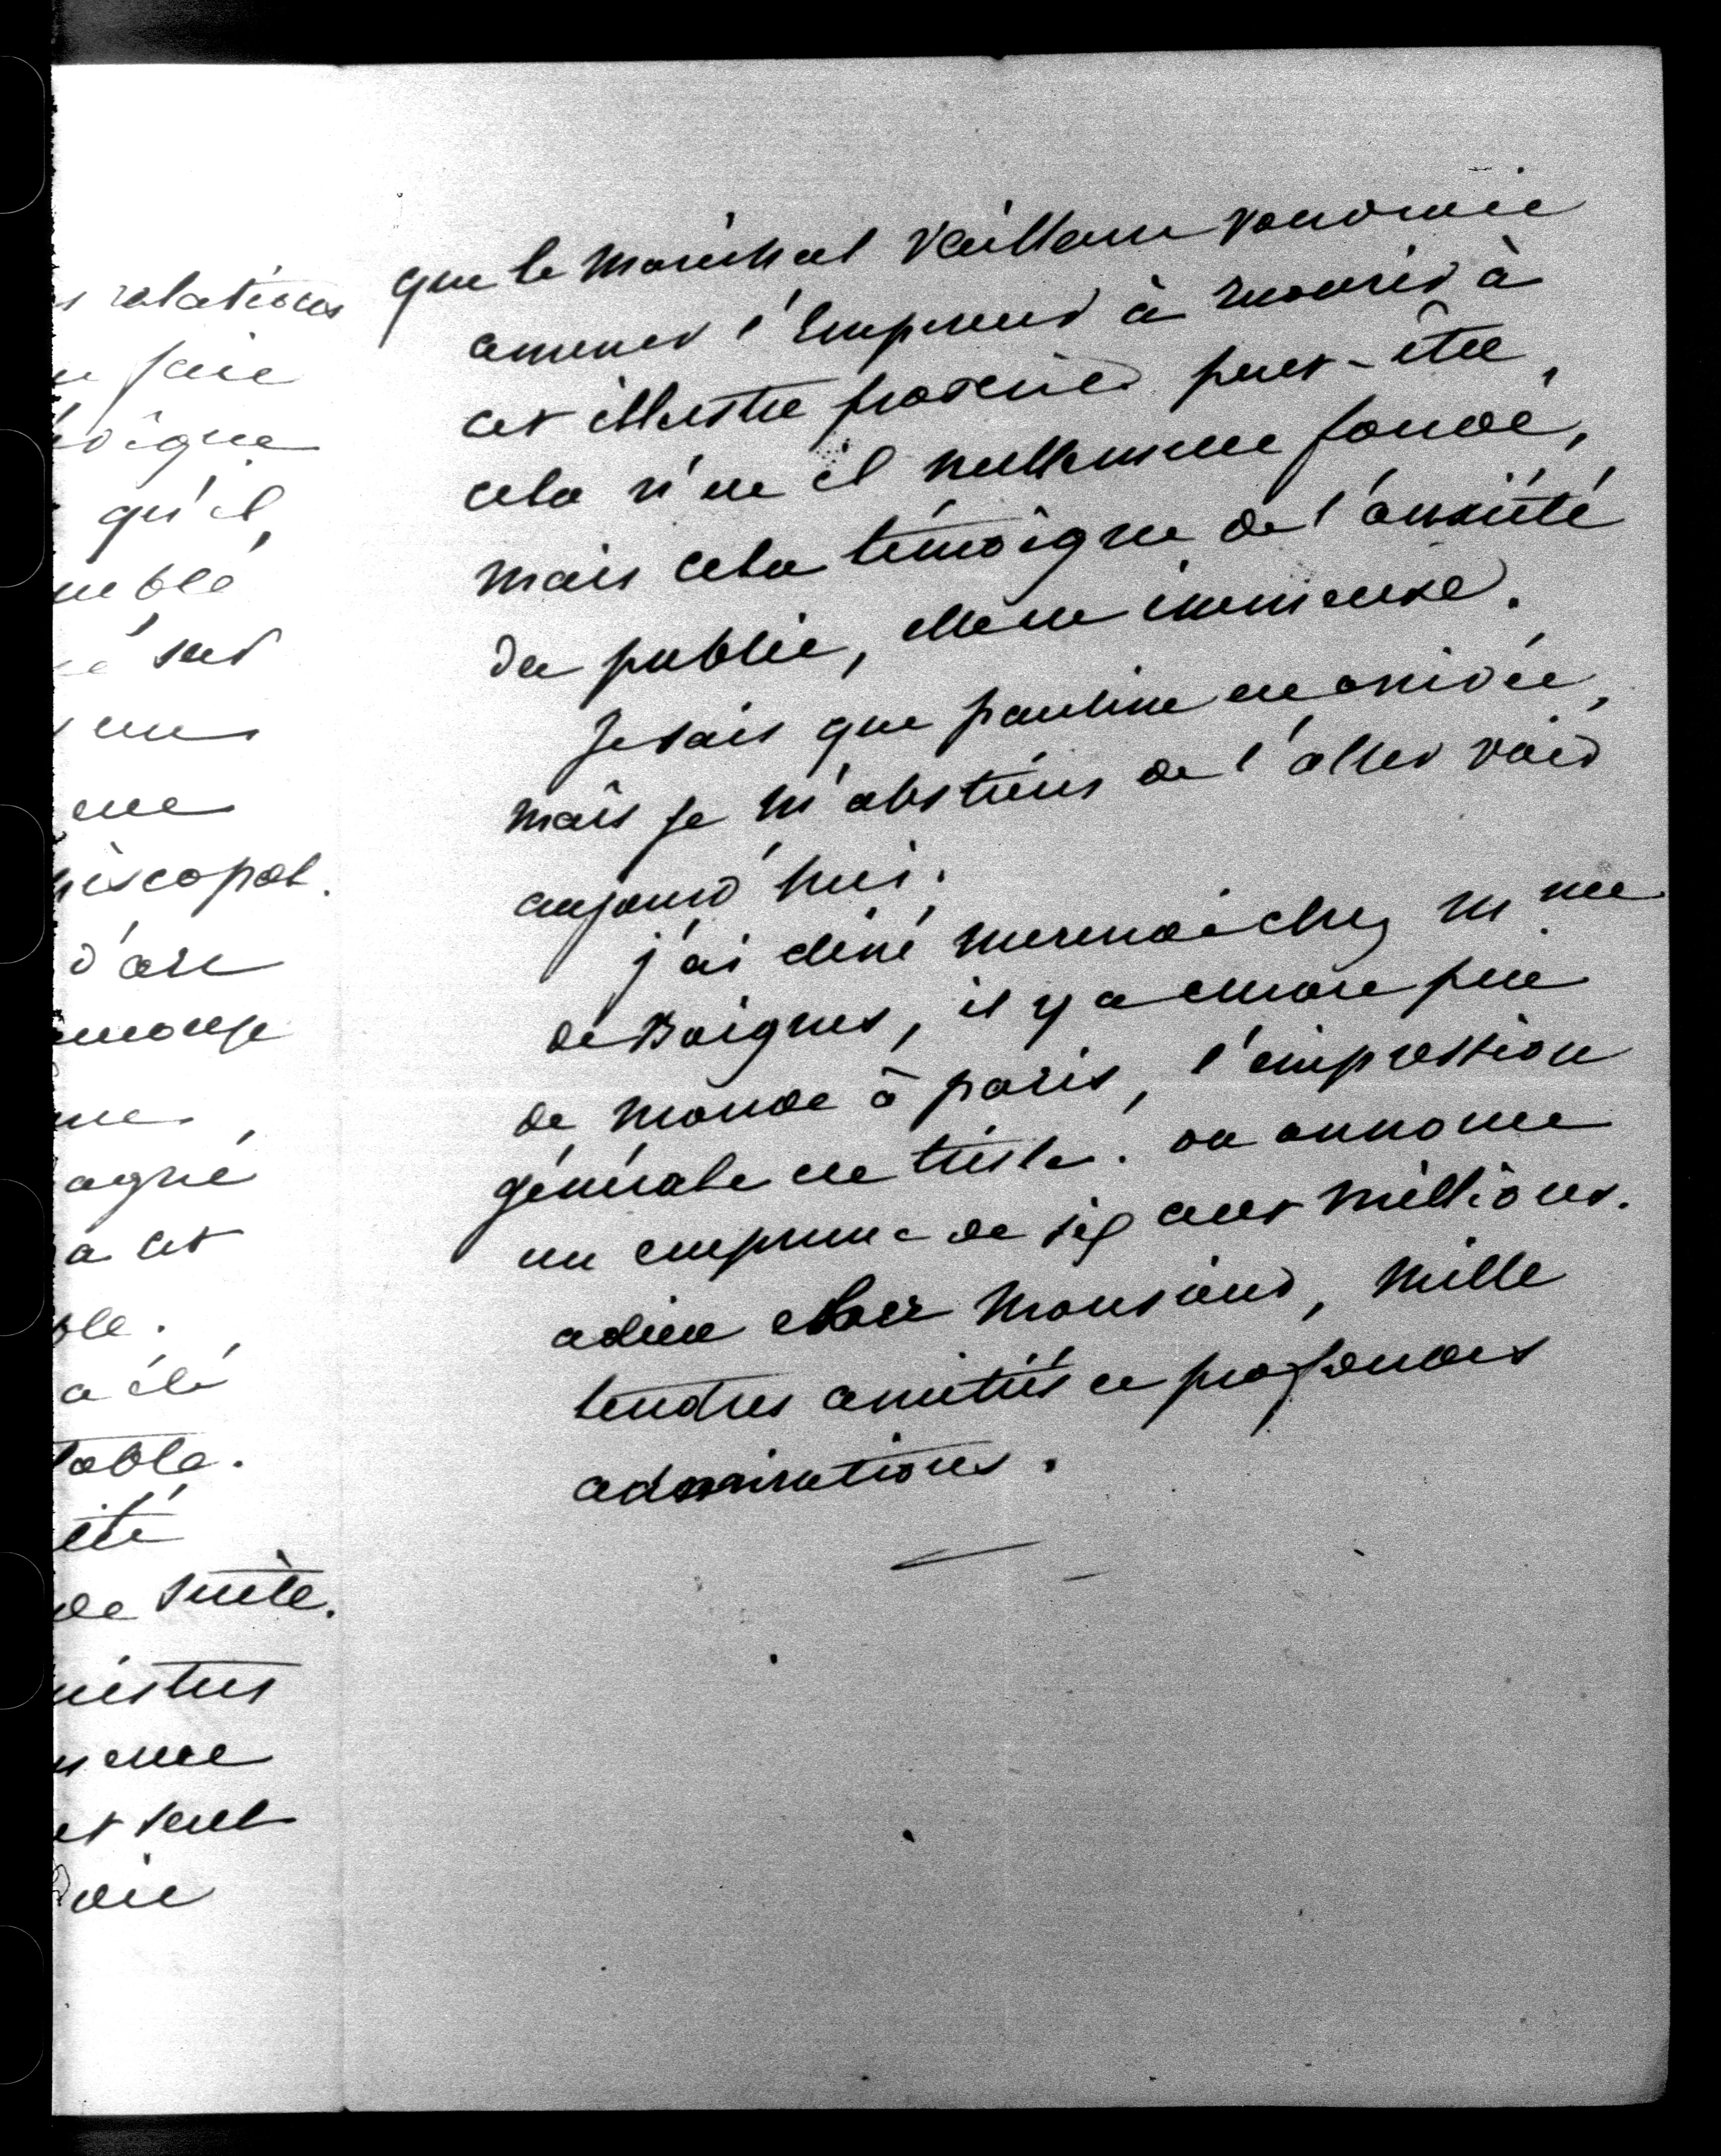 s relations
faire
digne
qu'il
semblé
é sur
une
piscopat.
d'une
agné
a cet
ble.
a été
table.
été
de suite.
nistres
et seul
que le Maréchal Vaillant voudrait
amener l'Empereur à recourir à
cet illustre proscrit peut-être,
cela n'est il nullement fondé,
mais cela témoigne de l'anxiété
du public, elle est immense.
Je sais que pauline est arrivée,
mais je m'abstiens de l'aller voir
aujourd'hui.
j'ai diné mercredi chez Mme
de Boignes, il y a encore peu
de monde à paris, l'impression
générale est triste. on annonce
un emprunt de six cent millions.
adieu cher Monsieur, mille
tendres amitiés et profondes
admirations.